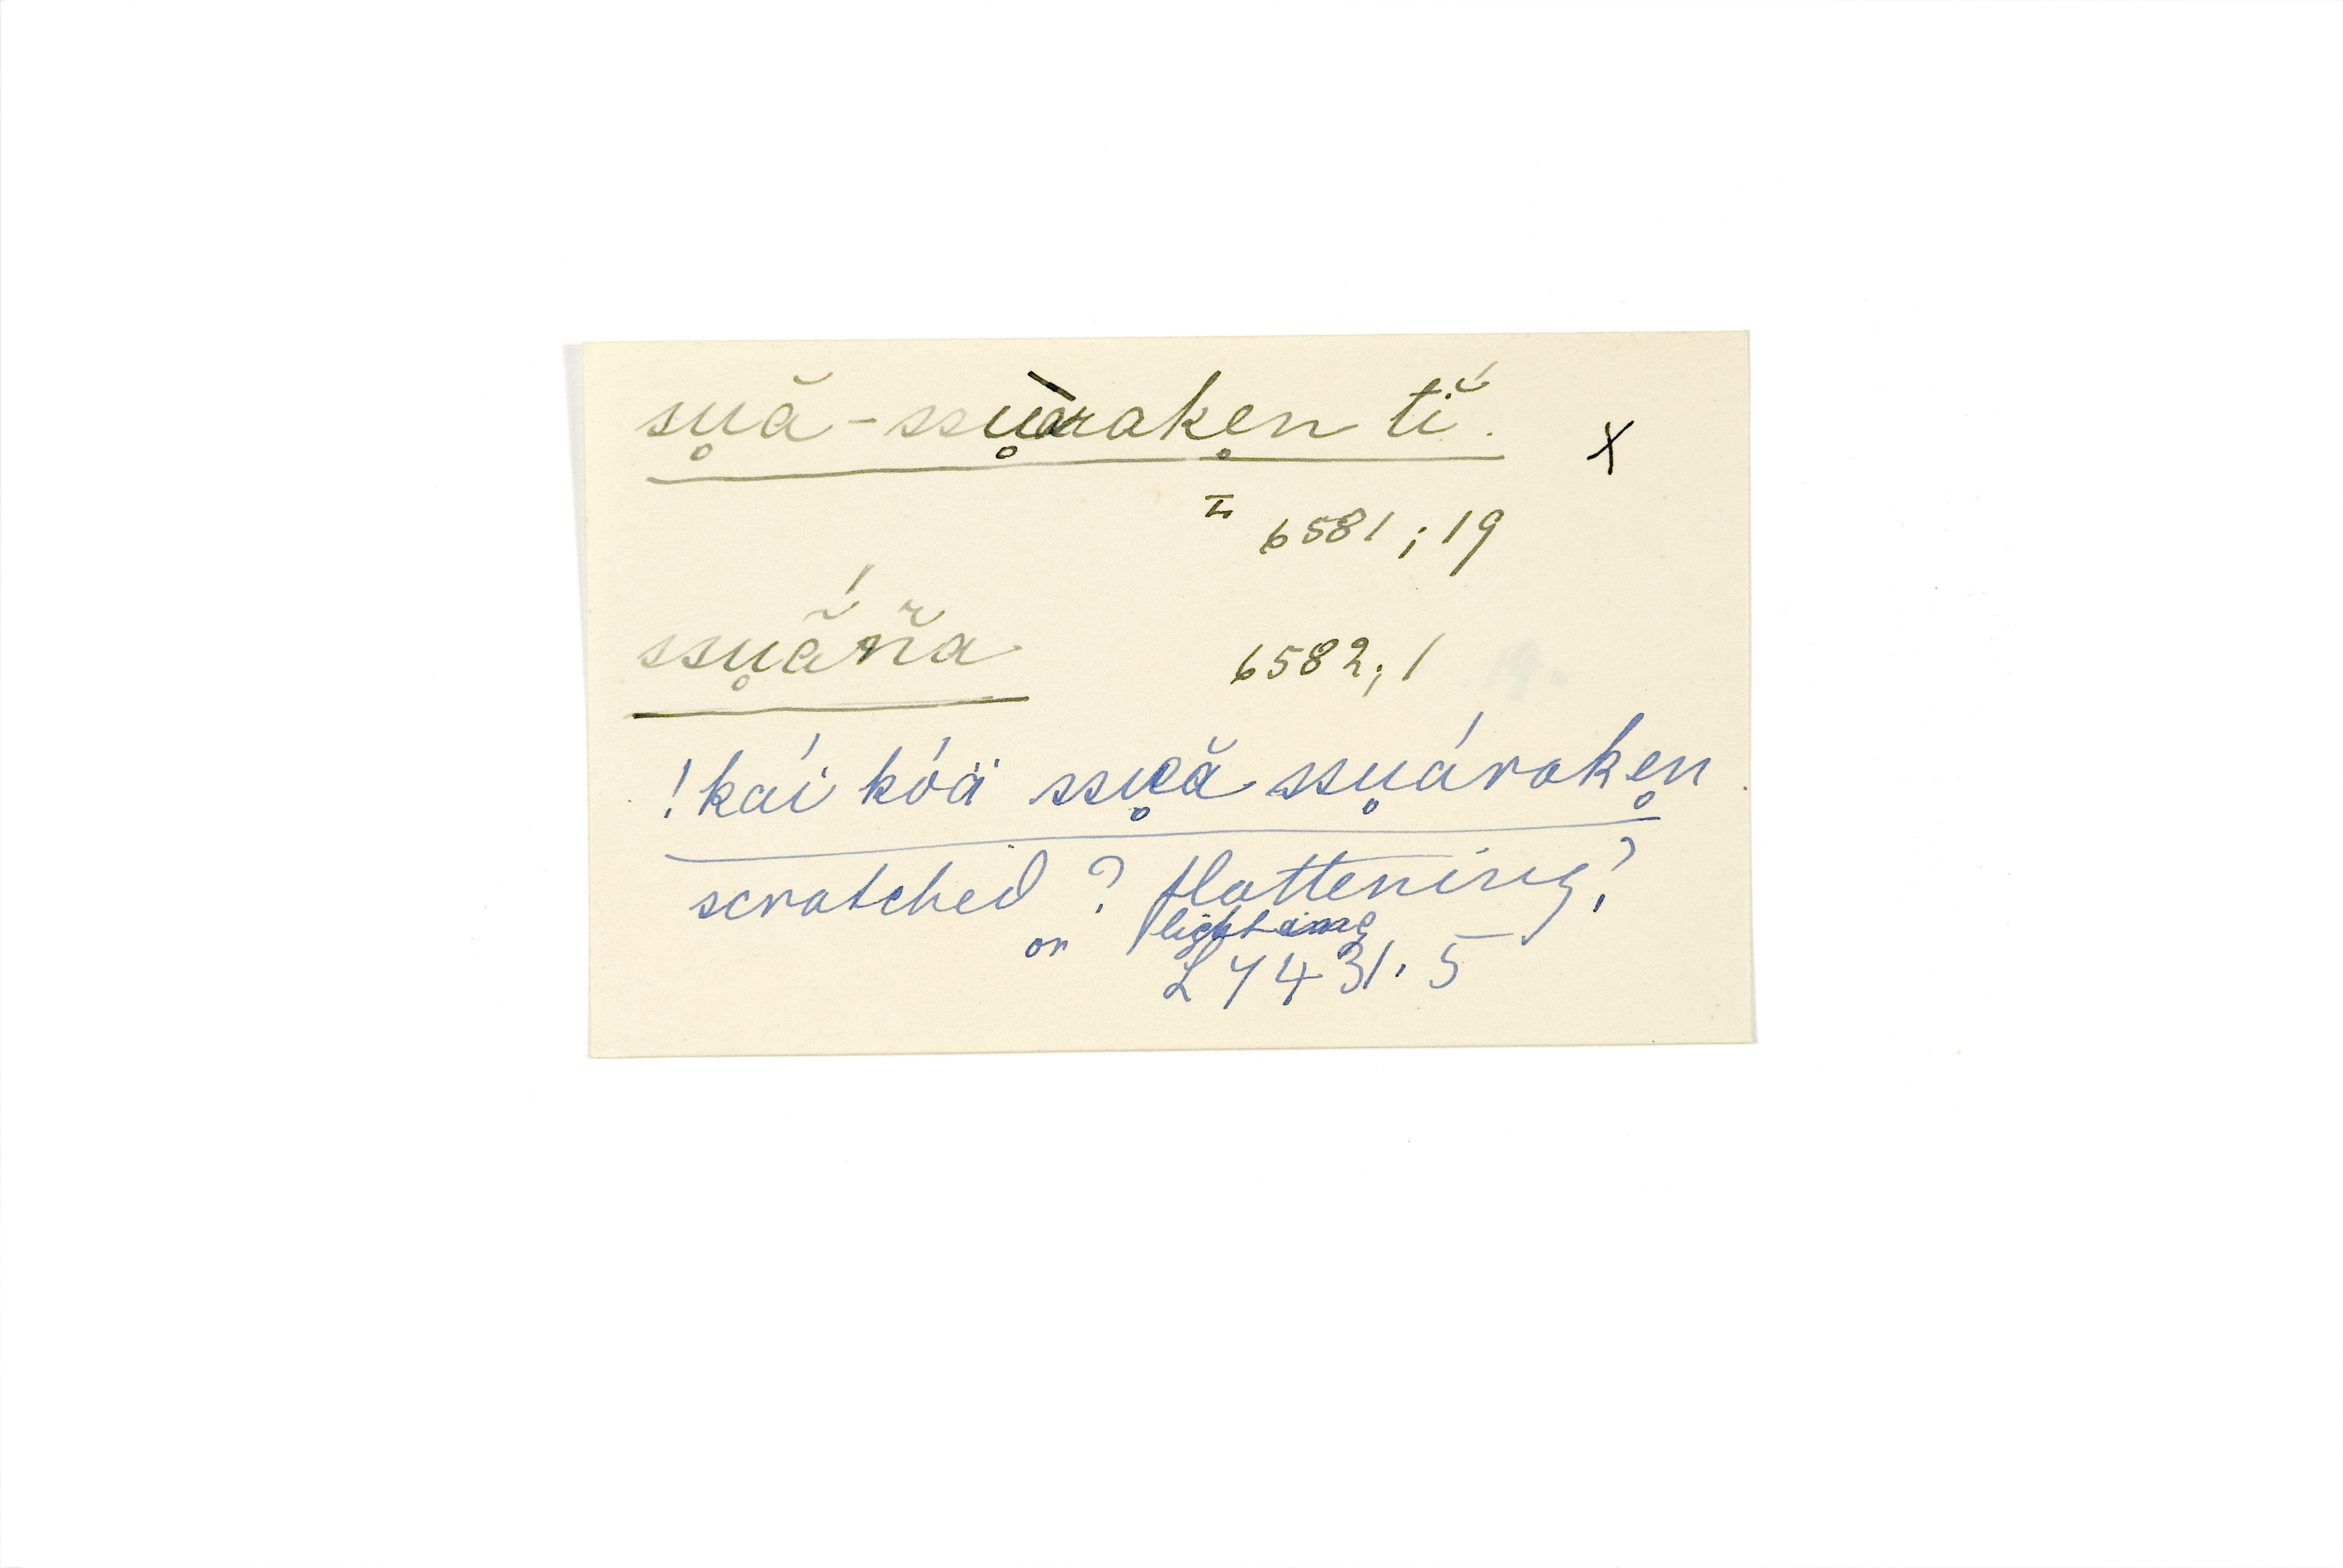 su̥ă-ssu̥àrake̥n tĭ́. X
L 6581; 19
ssu̥ắr̆a 6582; 1
!kái kóä ssu̥ă ssu̥árake̥n
scratched? flattening?
or lightening
L 7431. 5